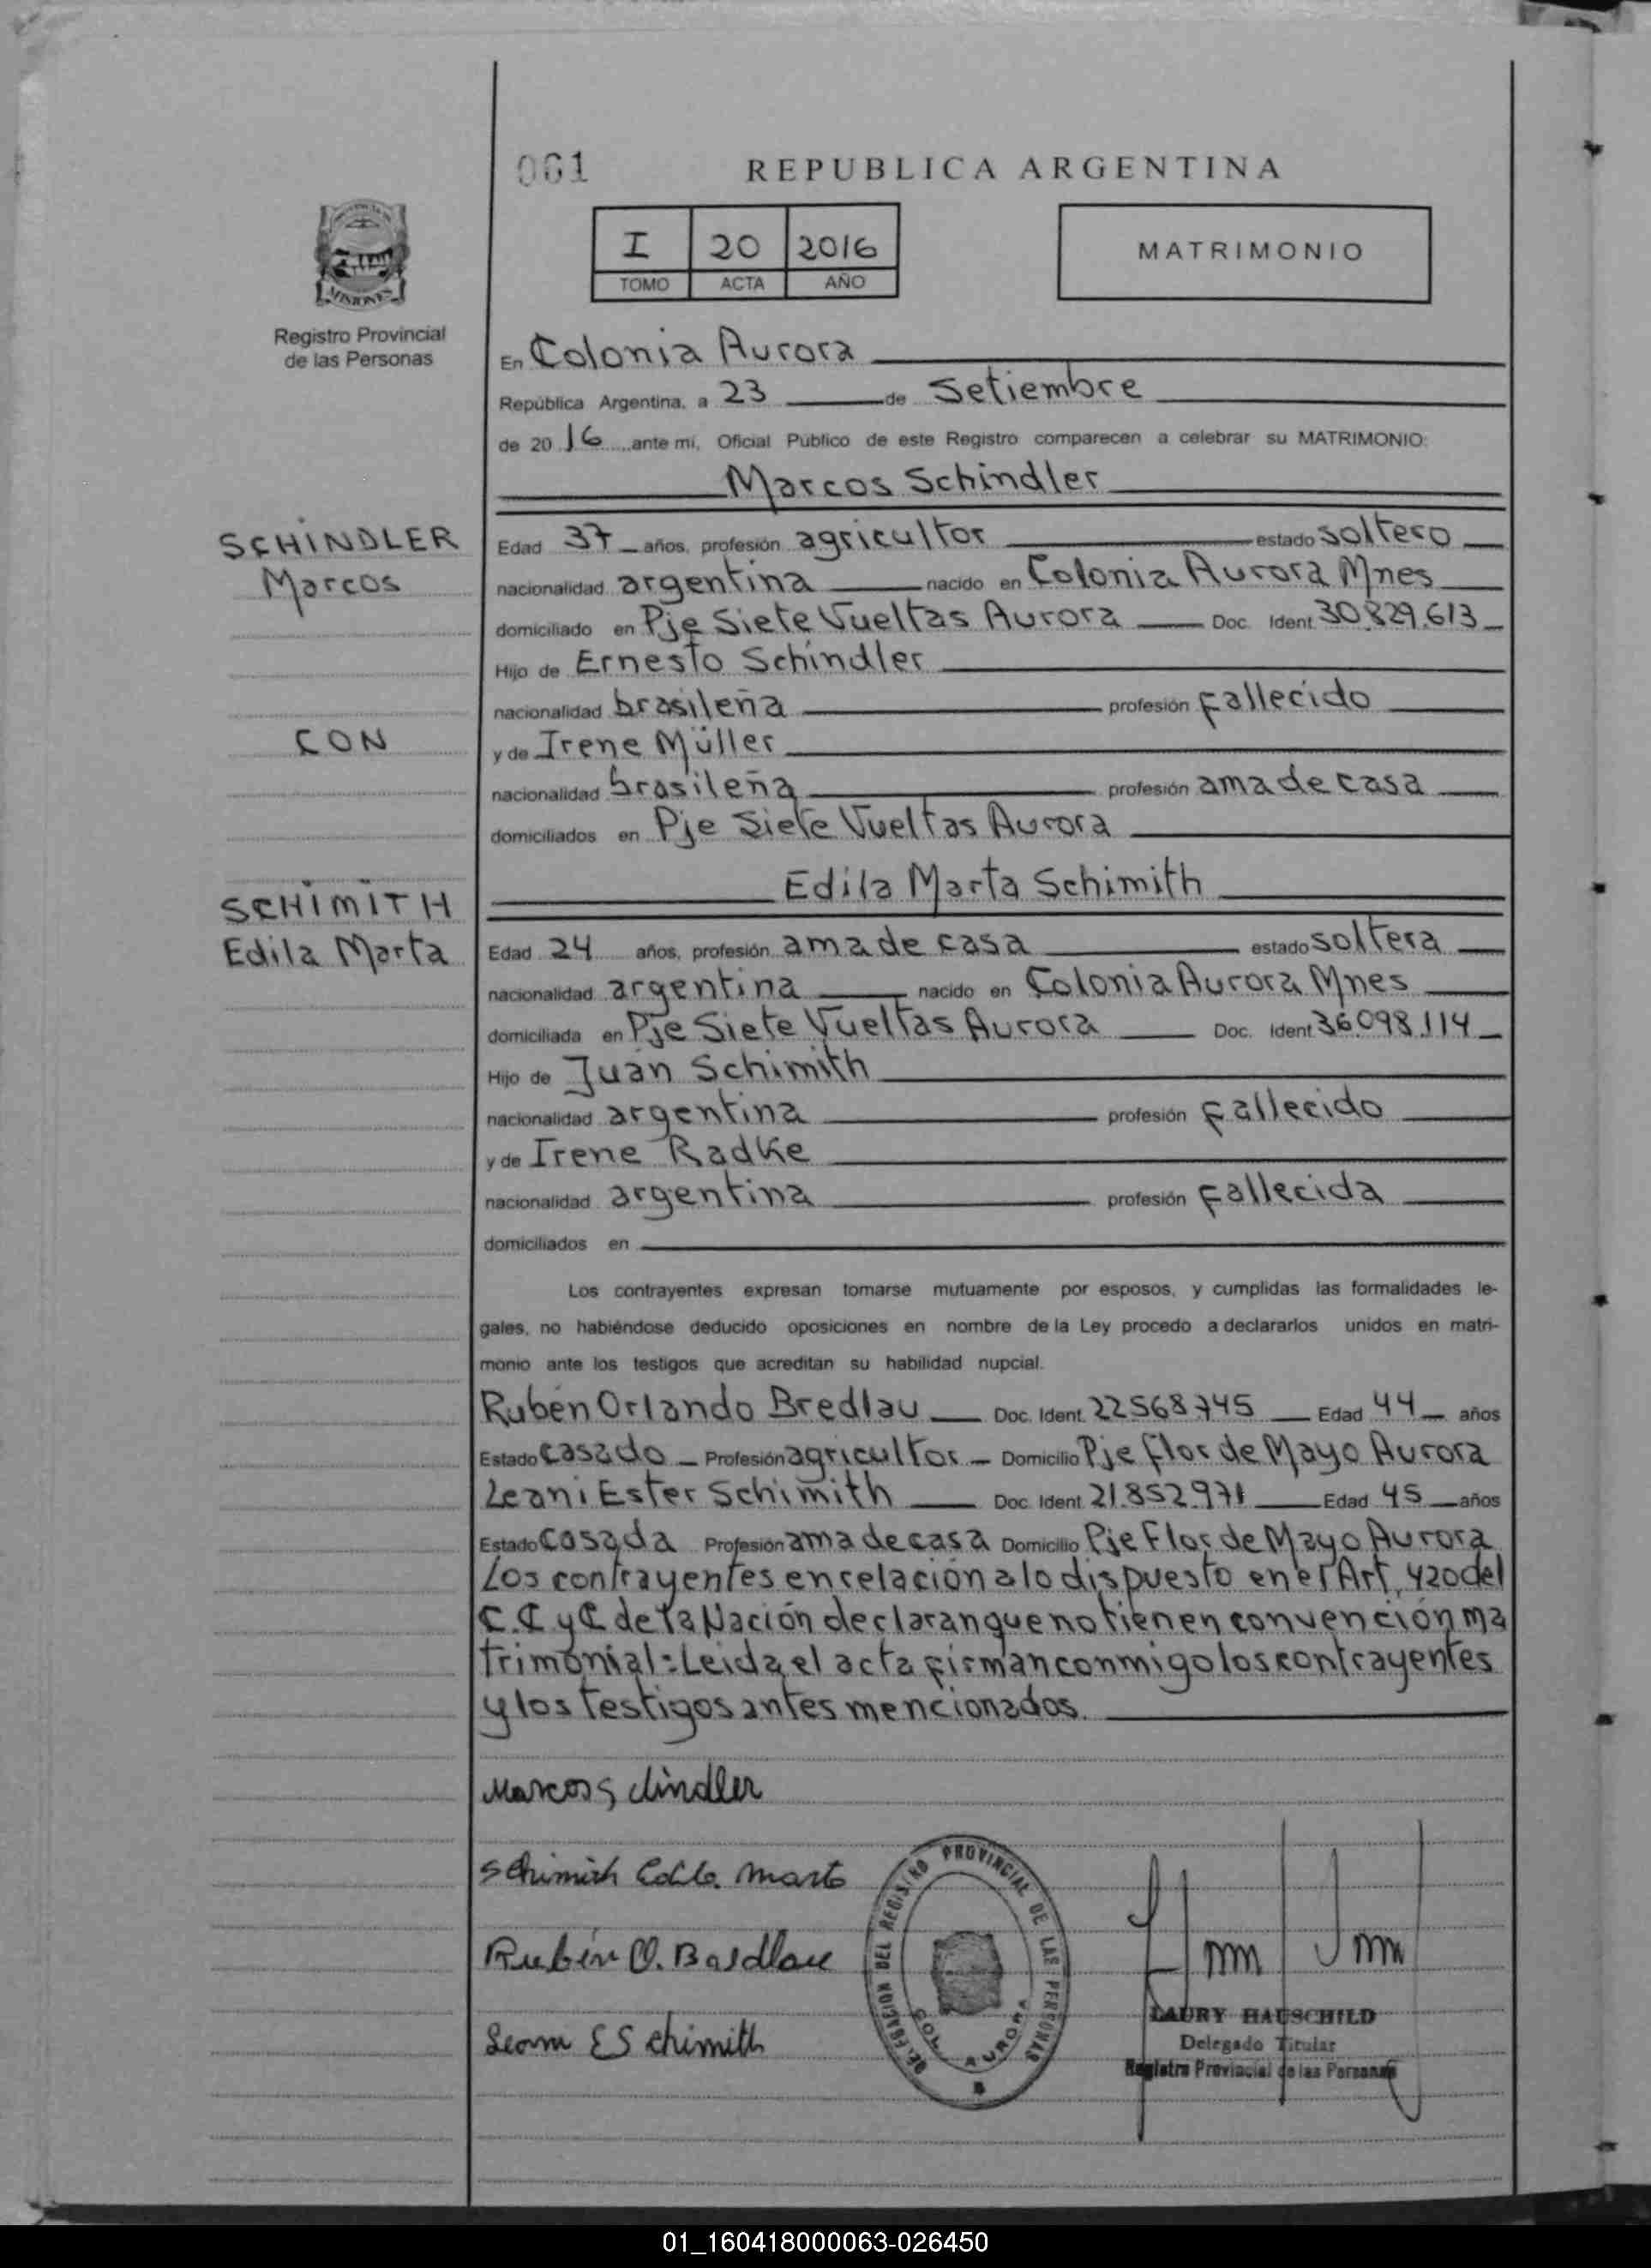 061
REPUBLICA ARGENTINA
I 20 2016
TOMO ACTA AÑO
MATRIMONIO
MISIONES
Registro Provincial
de las Personas
En Colonia Aurora
República Argentina, a 23 de Setiembre
de 20 16 ante mi, Oficial Público de este Registro comparecen a celebrar su MATRIMONIO:
Marcos Schindler
SCHINDLER
Marcos
CON
SCHIMITH
Edila Marta
Edad 37 años, profesión agricultor estado soltero
nacionalidad argentina nacido en Colonia Aurora Mnes
domiciliado en Pje Siete Vueltas Aurora Doc. Ident 30.829.613
Hijo de Ernesto Schindler
nacionalidad brasileña profesión fallecido
y de Irene Müller
nacionalidad brasileña profesión ama de casa
domiciliados en Pje Siete Vueltas Aurora
Edila Marta Schimith
Edad 24 años, profesión ama de casa estado soltera
nacionalidad argentina nacido en Colonia Aurora Mnes
domiciliada en Pje Siete Vueltas Aurora Doc. Ident 36.098.114
Hijo de Juan Schimith
nacionalidad argentina profesión fallecido
y de Irene Radke
nacionalidad argentina profesión fallecida
domiciliados en
Los contrayentes expresan tomarse mutuamente por esposos, y cumplidas las formalidades le-
gales, no habiéndose deducido oposiciones en nombre de la Ley procedo a declararlos unidos en matri-
monio ante los testigos que acreditan su habilidad nupcial.
Rubén Orlando Bredlau Doc. Ident. 22.568.745 Edad 44 años
Estado casado Profesión agricultor Domicilio Pje flor de Mayo Aurora
Leani Ester Schimith Doc. Ident. 21.852.971 Edad 45 años
Estado casada Profesión ama de casa Domicilio Pje Flor de Mayo Aurora
Los contrayentes en relación a lo dispuesto en el Art. 420 del
C.C y C de la Nación declaran que no tienen convención ma
trimonial: Leida, el acta firman conmigo los contrayentes
y los testigos antes mencionados.
Marcos Schindler
Schimith Edila Marta
Rubén O. Bredlau
Leani E Schimith
DELEGACION DEL REGISTRO PROVINCIAL DE LAS PERSONAS
COL. AURORA
LAURY HAUSCHILD
Delegado Titular
Registro Provincial de las Personas
01_160418000063-026450